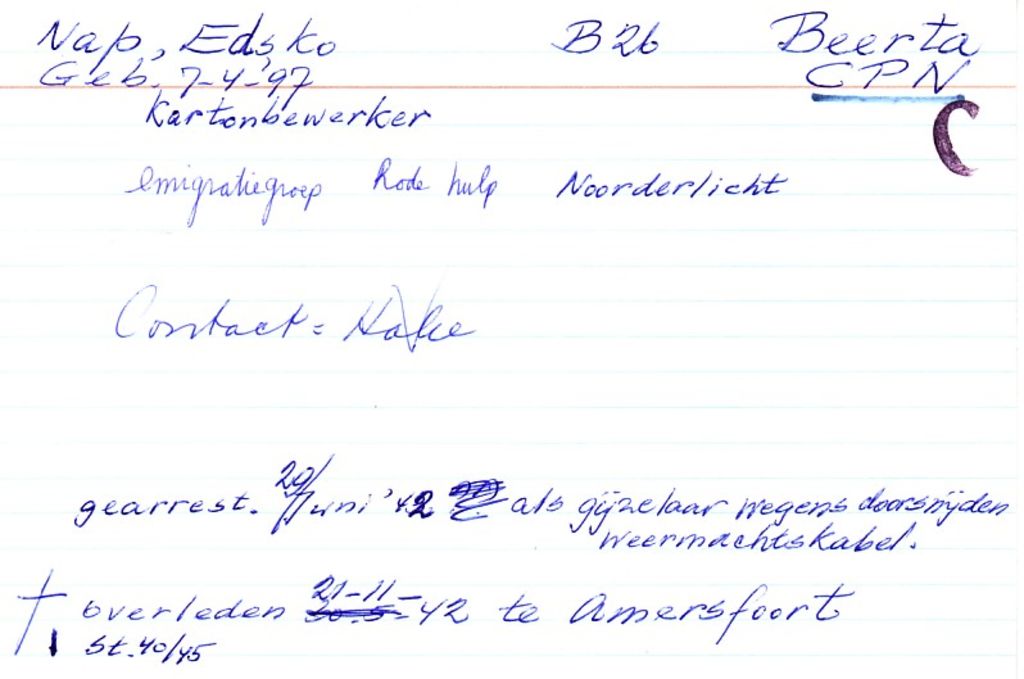 Nap, Edsko B26 Beerta
Geb. 7-4-'97 CPN
Kartonbewerker C
emigratiegroep Rode hulp Noorderlicht
Contact =
gearrest. 20/Juni '42 als gijzelaar wegens doorsnijden
weermachtskabel.
† overleden 21-11-42 te Amersfoort
St. 40/45